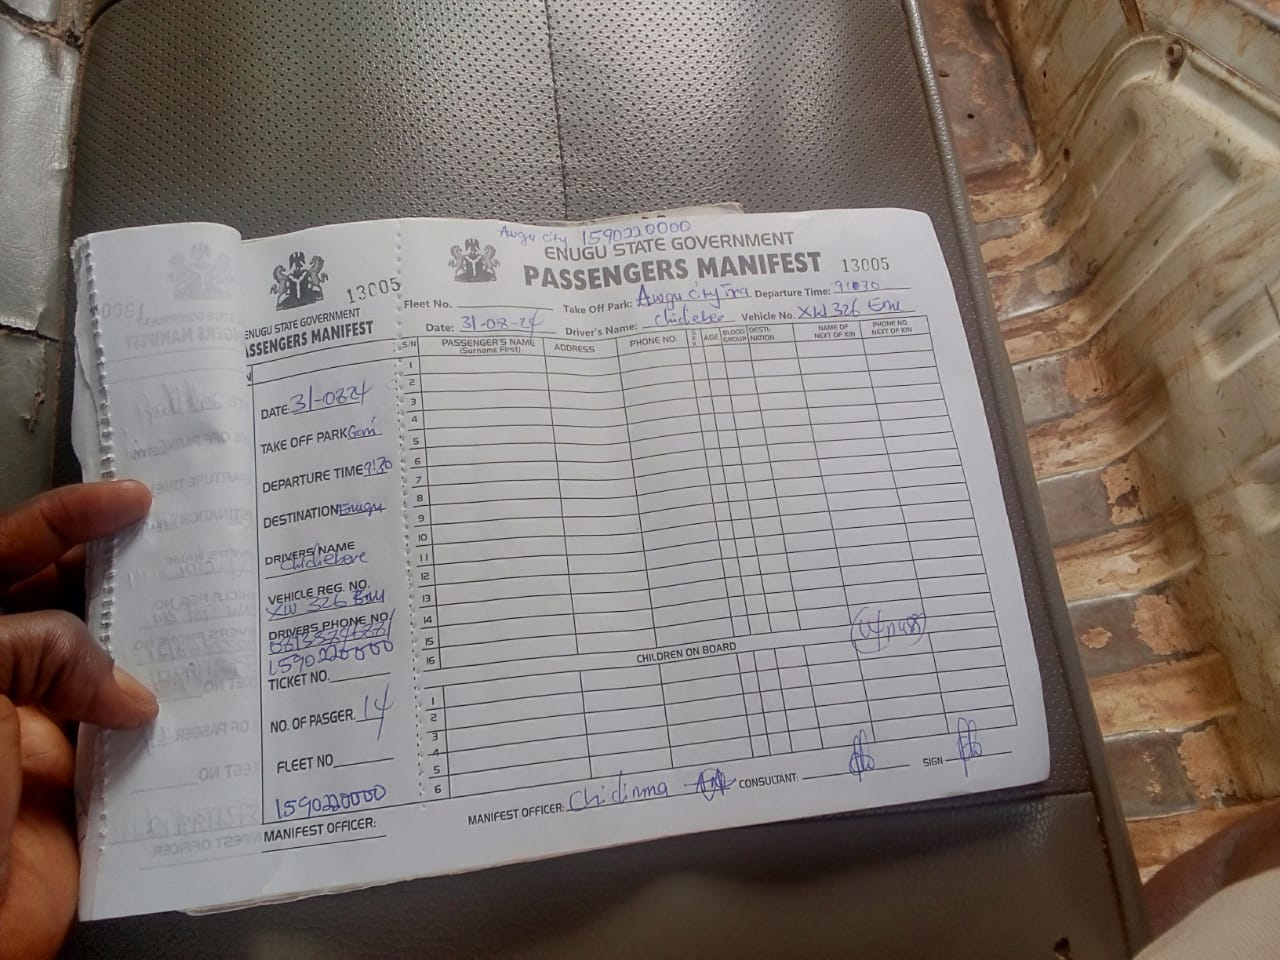 13005
ENUGU STATE GOVERNMENT
PASSENGERS MANIFEST
DATE: 31-08-24
TAKE OFF PARK
DEPARTURE TIME 9:30
DESTINATION Enugu
DRIVERS NAME
Chidiebere
VEHICLE REG. NO.
XW 326 Enu
DRIVERS PHONE NO.
1590220000
TICKET NO.
NO. OF PASGER. 14
FLEET NO
1590220000
MANIFEST OFFICER:
Awgu city 1590220000
ENUGU STATE GOVERNMENT
PASSENGERS MANIFEST 13005
Fleet No. Take Off Park: Awgu city Departure Time: 9:30
Date: 31-08-24 Driver's Name: Chidiebere Vehicle No. XW 326 Enu
S/N PASSENGER'S NAME (Surname First) ADDRESS PHONE NO. SEX AGE BLOOD GROUP DESTI-NATION NAME OF NEXT OF KIN PHONE NO. NEXT OF KIN
1
2
3
4
5
6
7
8
9
10
11
12
13
14
15
16
CHILDREN ON BOARD
1
2
3
4
5
6
MANIFEST OFFICER: Chidinma CONSULTANT: SIGN